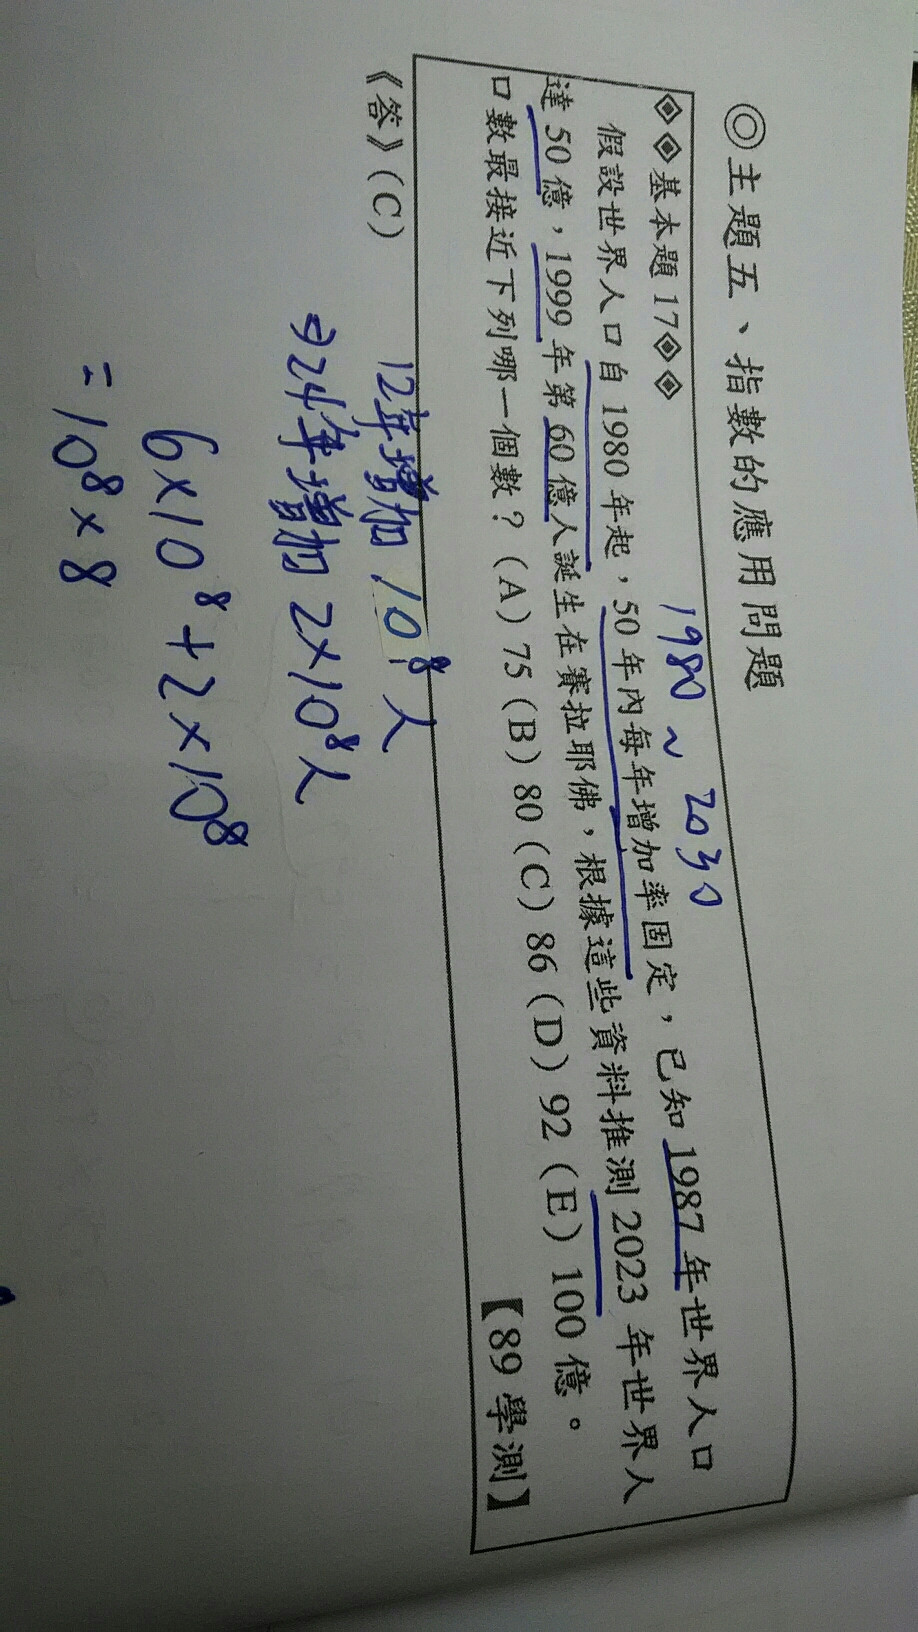 ◎主題五、指數的應用問題
◈◈基本題17◈◈
1980 ~ 2030
假設世界人口自1980年起，50年內每年增加率固定，已知1987年世界人口
達50億，1999年第60億人誕生在賽拉耶佛，根據這些資料推測2023年世界人
口數最接近下列哪一個數？(A)75(B)80(C)86(D)92(E)100億。
【89學測】
《答》(C)
12年增加 10⁸人
⇒24年增加 2×10⁸人
6×10⁸+2×10⁸
=10⁸×8